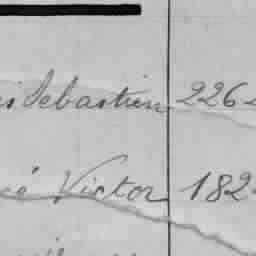 is Sebastien 226
cé Victor 182